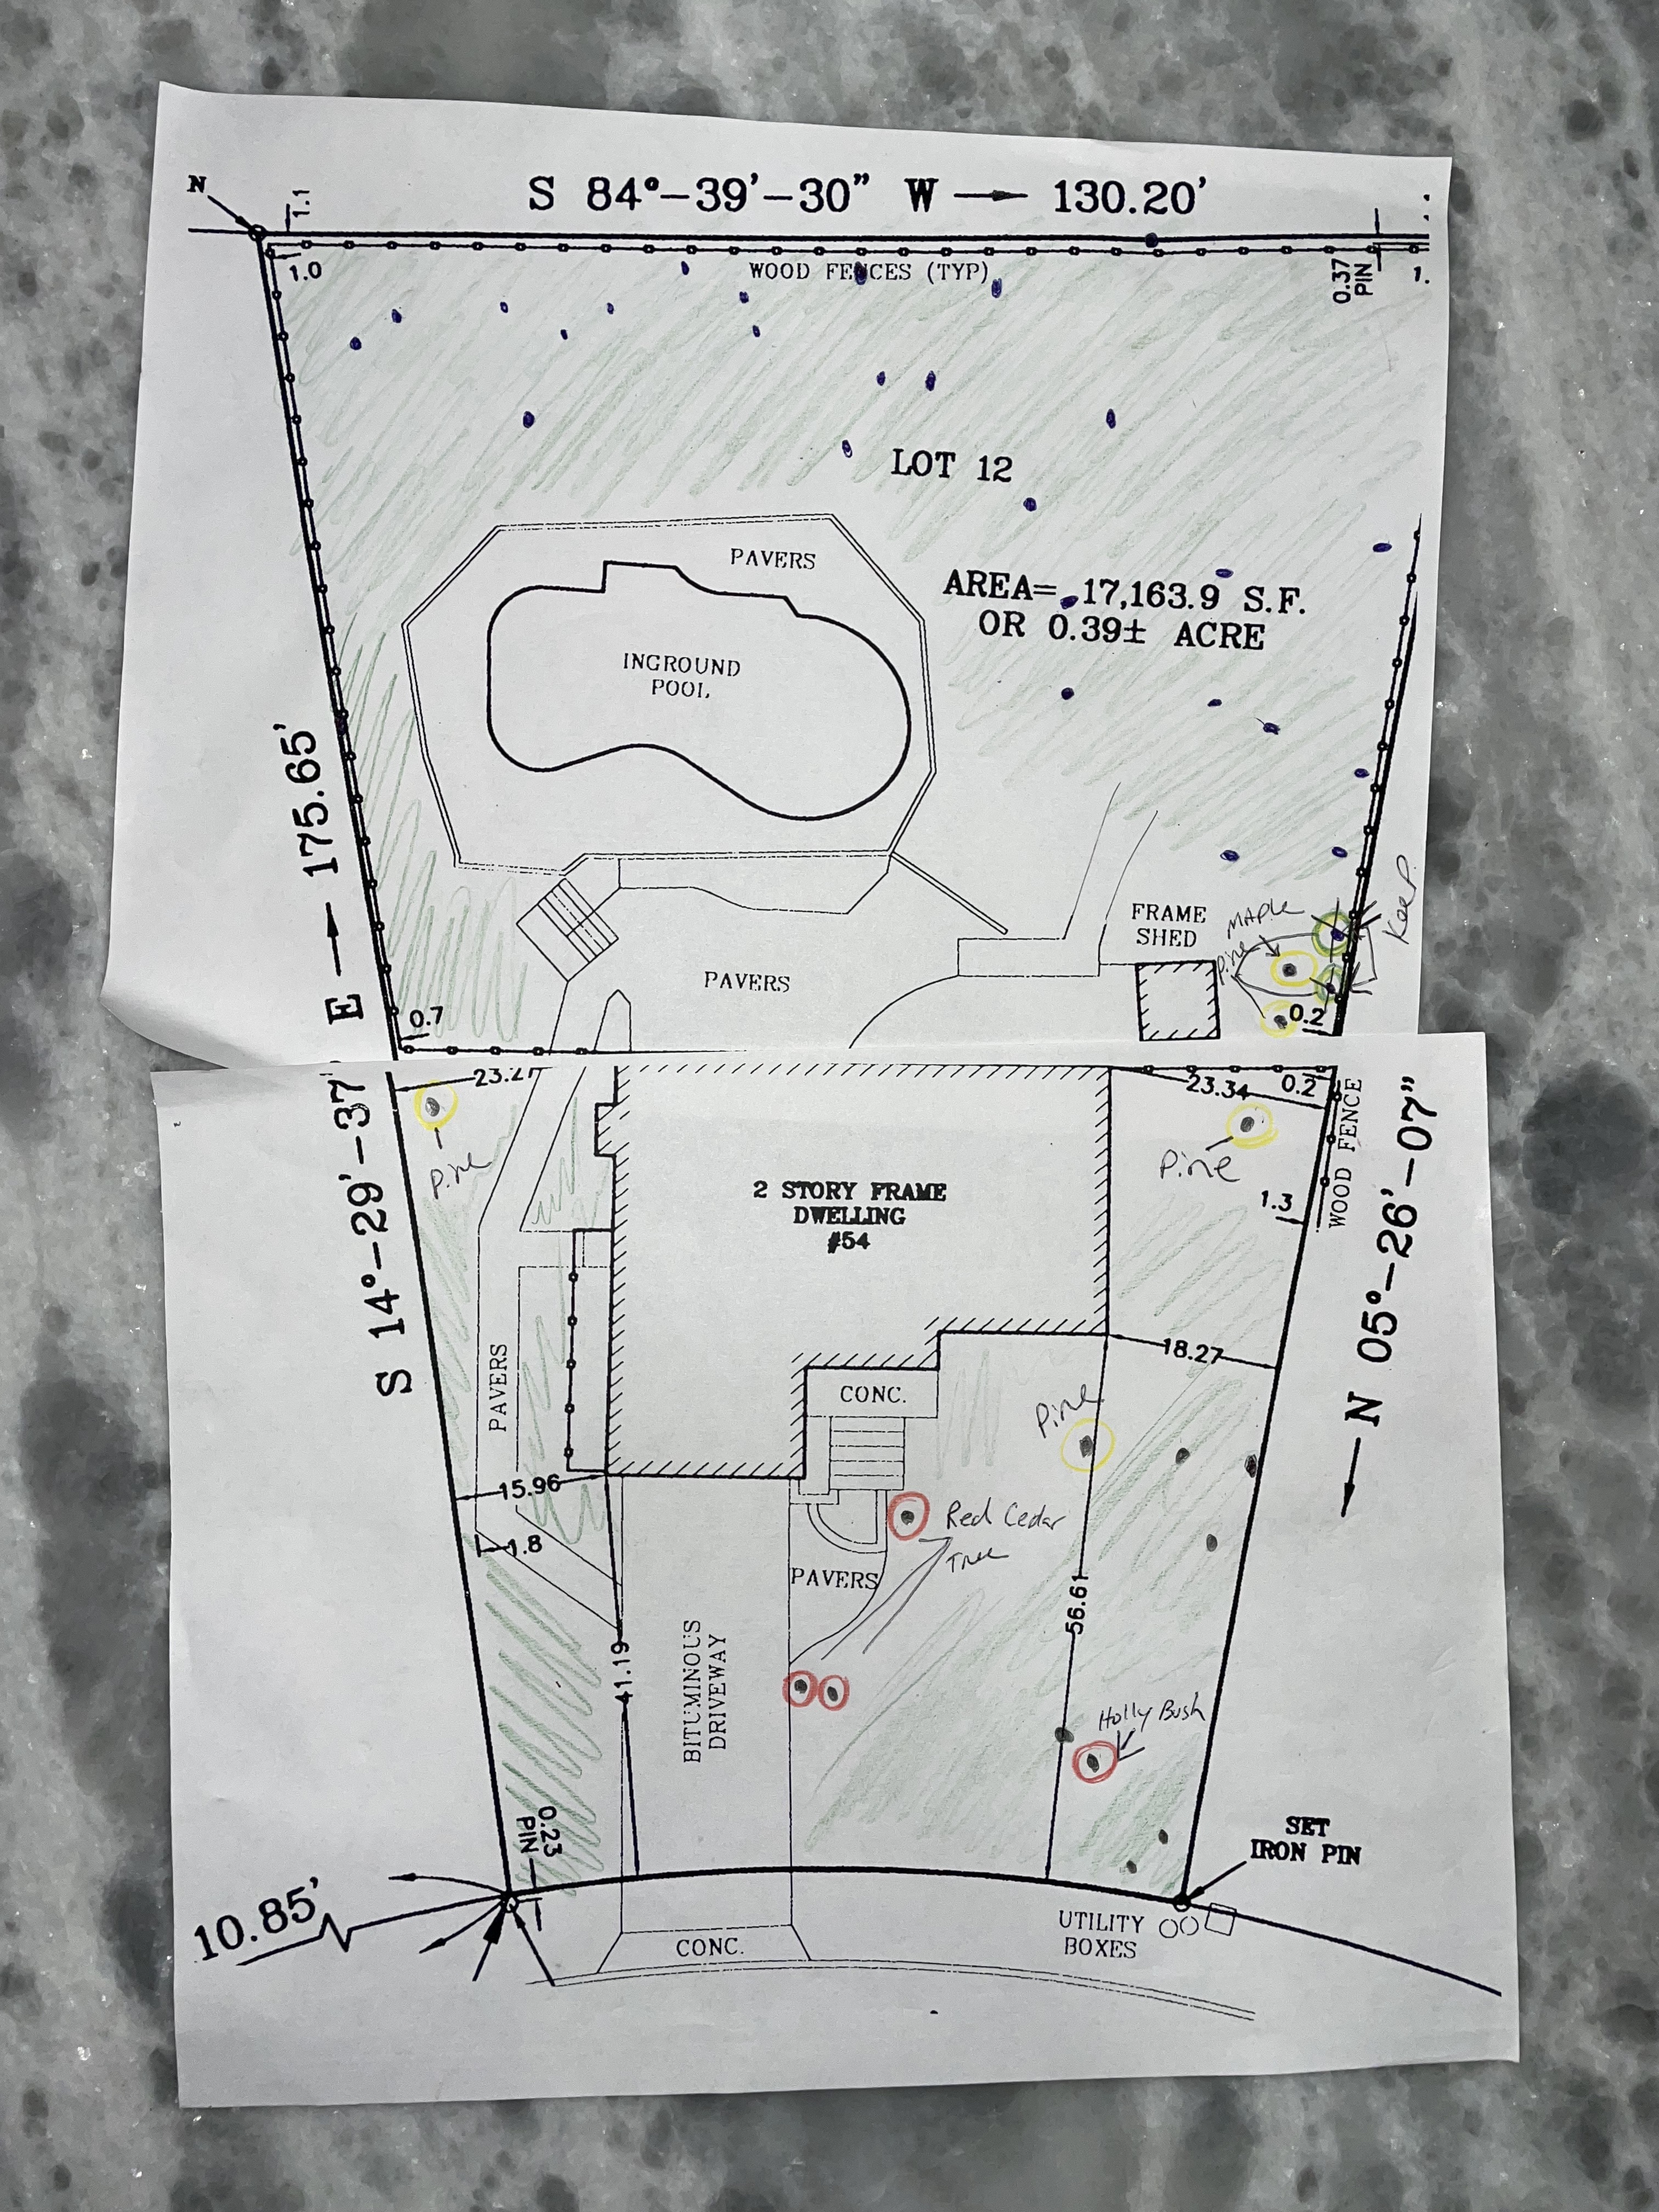 N
1.1
S 84°-39'-30" W → 130.20'
1.0
WOOD FENCES (TYP)
0.37
PIN
1.
LOT 12
PAVERS
AREA= 17,163.9 S.F.
OR 0.39± ACRE
INGROUND
POOL
175.65'
E
FRAME
SHED
MAPLE
Pine
KeeP
PAVERS
0.7
0.2
23.27
23.34
0.2
WOOD FENCE
Pine
Pine
S 14°-29'-37"
N 05°-26'-07"
2 STORY FRAME
DWELLING
#54
1.3
PAVERS
18.27
CONC.
Pine
15.96
1.8
Red Cedar
Tree
PAVERS
56.61
41.19
BITUMINOUS
DRIVEWAY
Holly Bush
0.23
PIN
SET
IRON PIN
10.85'
UTILITY
BOXES
CONC.